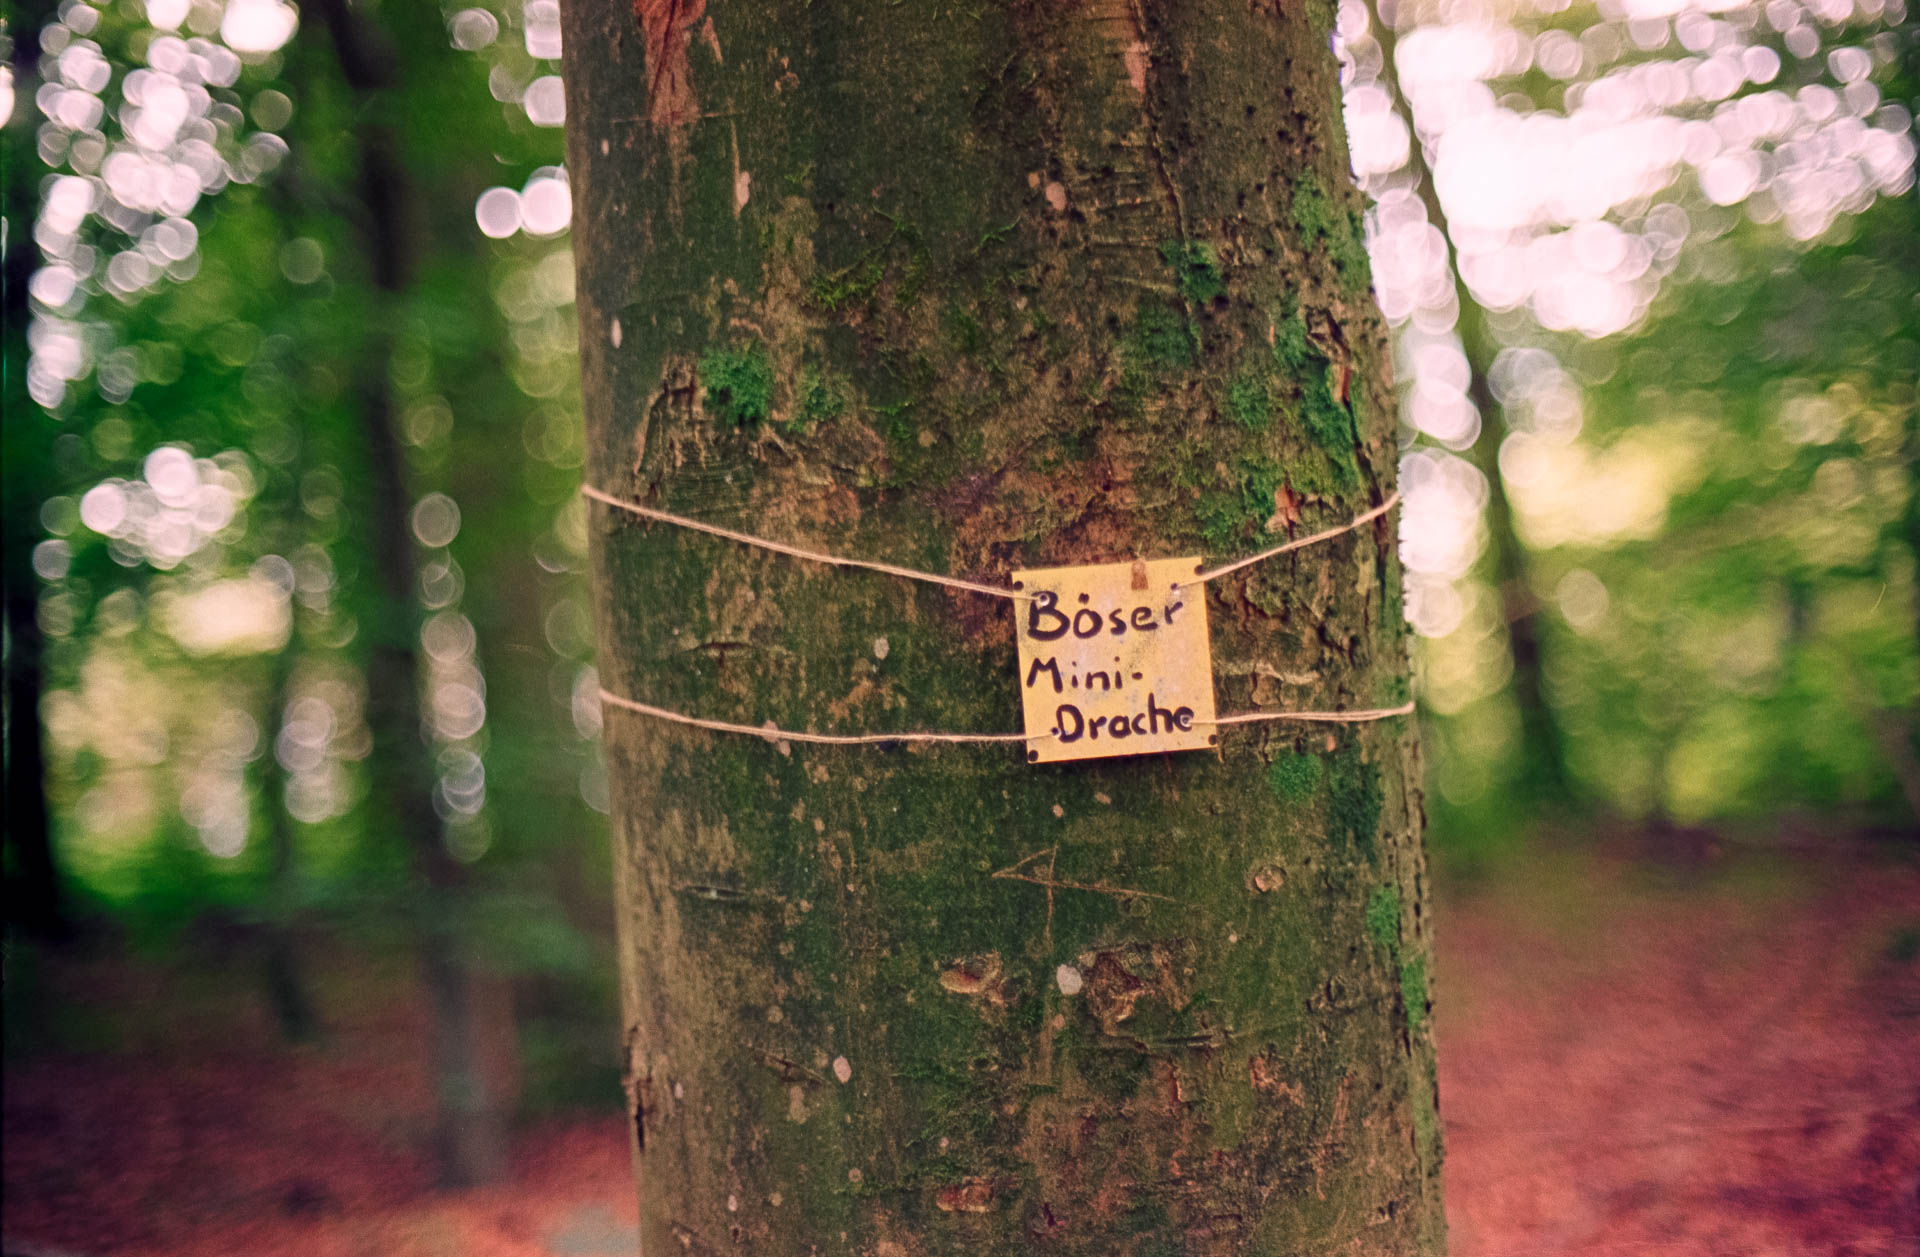 Böser
Mini-
Drache